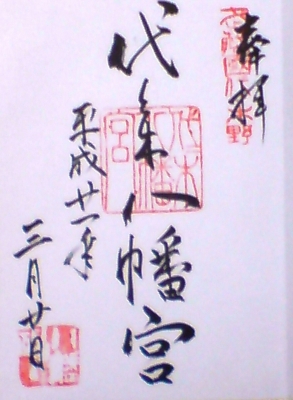 奉拝
代々木八幡宮
平成廿一年
三月廿日